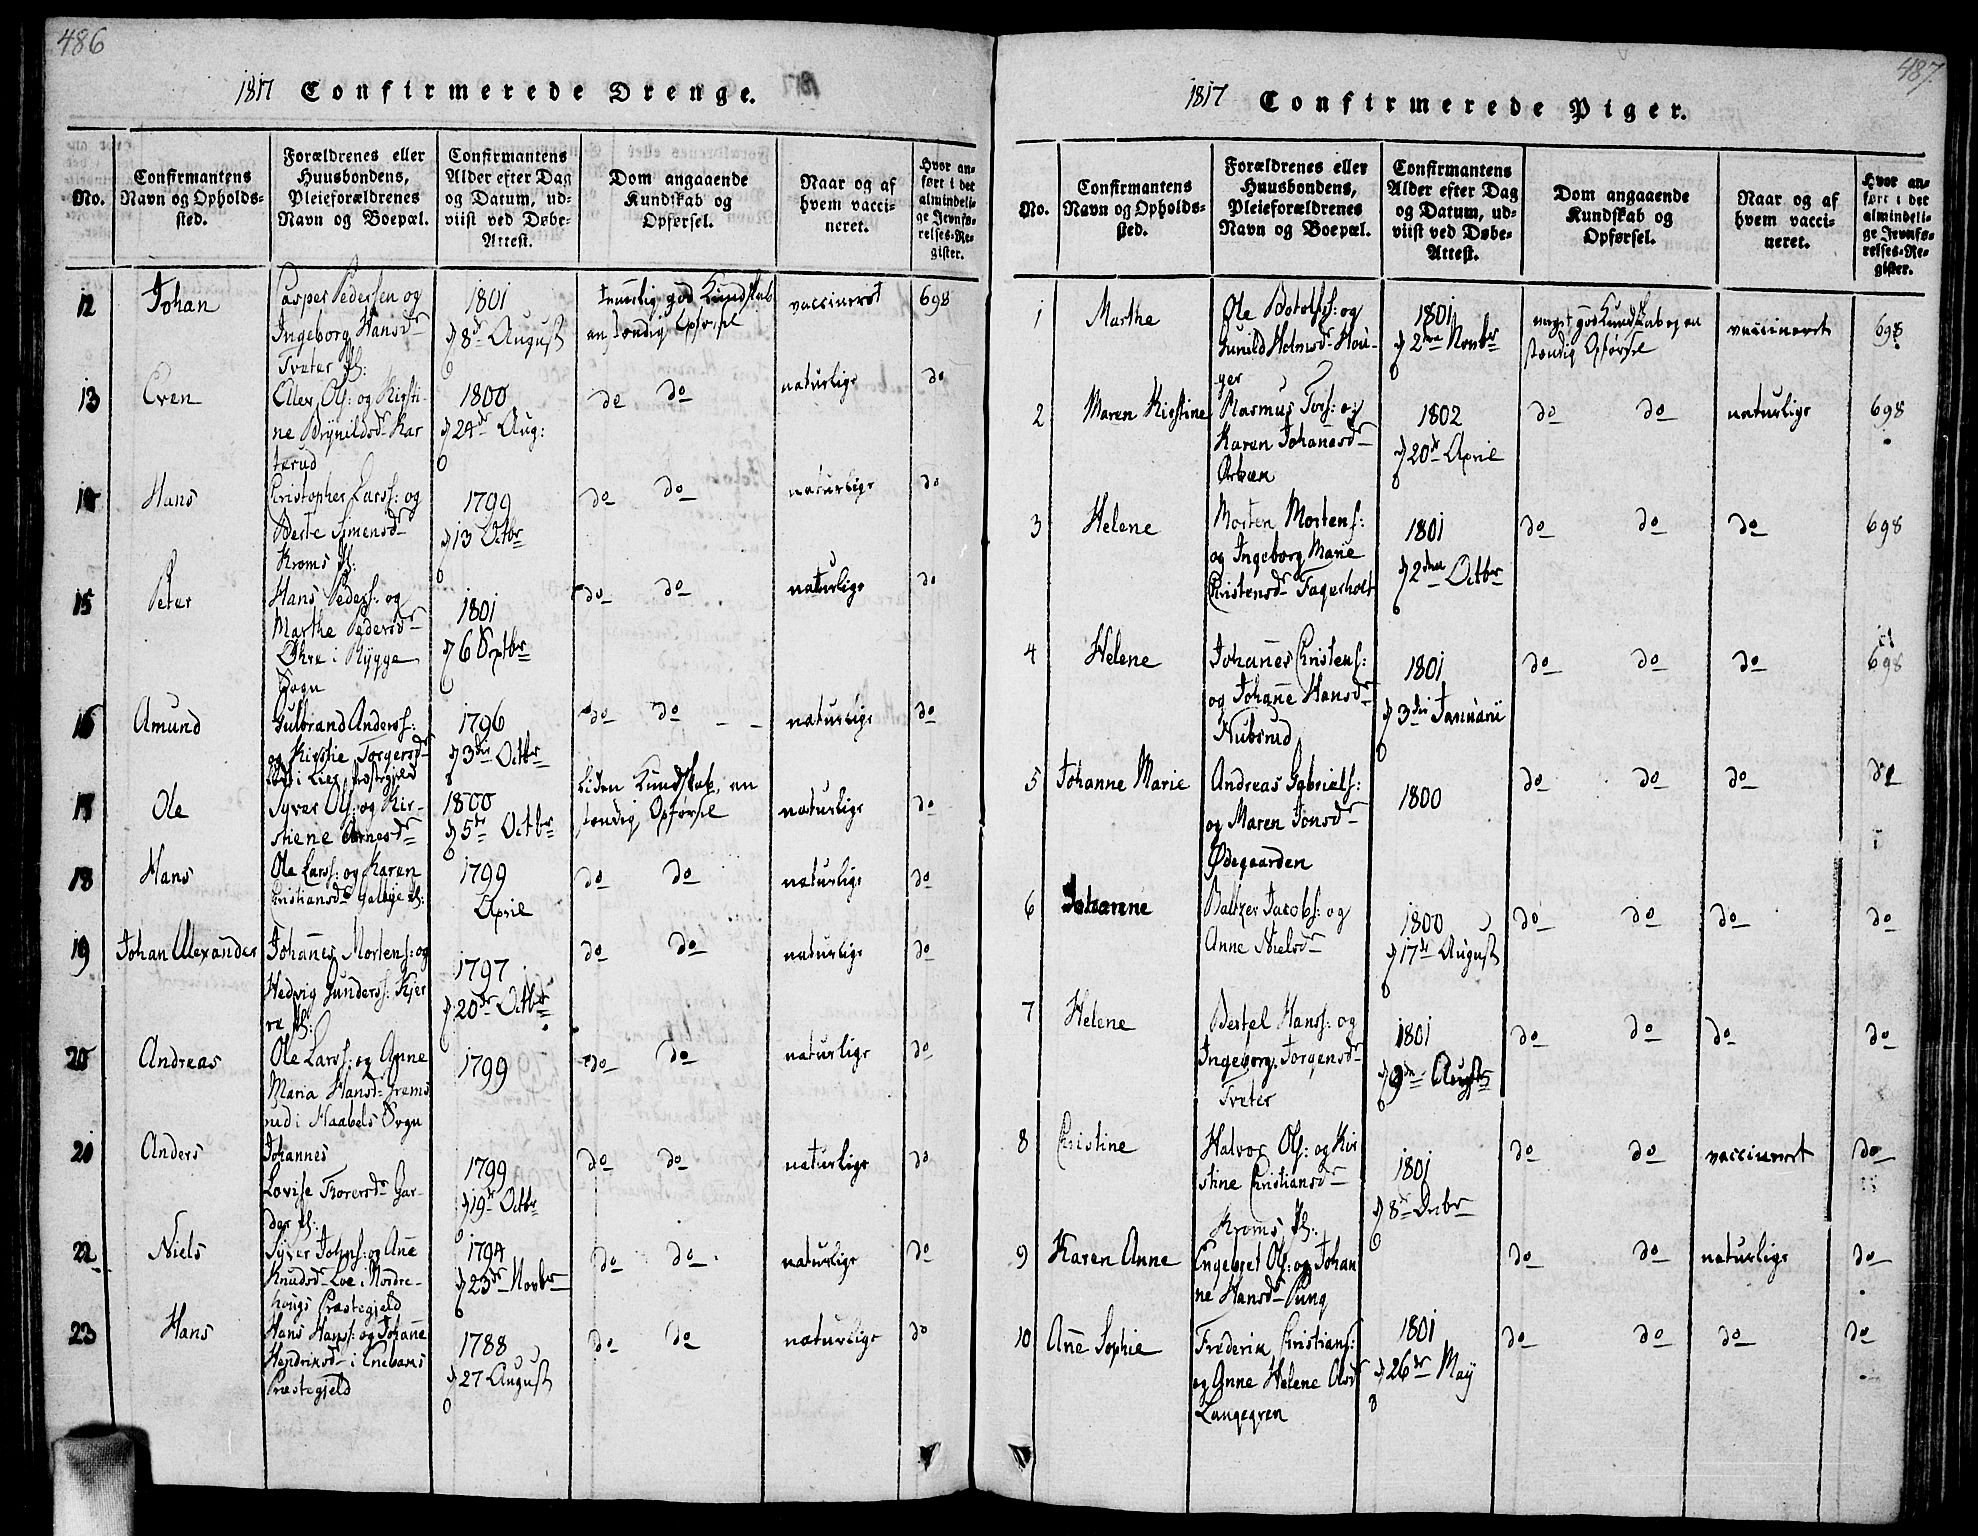 486
1817 Confirmerede Drenge.
No.
Confirmantens
Navn og Opholds-
sted.
Forældrenes eller
Huusbondens,
Pleieforældrenes
Navn og Boepæl.
Confirmantens
Alder efter Dag
og Datum, ud-
viist ved Døbe-
Attest.
Dom angaaende
Kundskab og
Opførsel.
Naar og af
hvem vacci-
neret.
Hvor an-
ført i det
almindeli-
ge Jevnfø-
relses-Re-
gister.
12 Johan
Casper Pedersen og
Ingeborg Hansd
Tveter
1801
8de August
temmelig god Kundskab
anstændig Opførsel
vaccineret
698
13 Even
Eller Ols: og Kirsti-
ne Brynildsd Kar
terud
1800
24de Aug:
do do
naturlige
do
14 Hans
Christopher Larss: og
Berte Simensd
Kroms
1799
13 Octbr
do do
naturlige
do
15 Peter
Hans Peders: og
Marthe Pedersd
Øhre i Rygge
Sogn
1801
6 Septbr
do do
naturlige
do
16 Amund
Gulbrand Anderss:
og Kirstie Torgersd
i Lier Præstegjeld
1796
3die Octbr
do do
naturlige
do
17 Ole
Syver Ols: og Kir-
stiene Arnesd
1800
5te Octbr
Liden Kundskab, an
stændig Opførsel
naturlige
do
18 Hans
Ole Larss: og Karen
Cristiansd
1799
April
do do
naturlige
do
19 Johan Alexander
Johannes Mortens: og
Hedvig Gunderss: Kjer
re
1797
20de Octbr
do do
naturlige
do
20 Andreas
Ole Larss: og Anne
Maria Hansd Grems
rud i Haabels Sogn
1799
do do
naturlige
do
21 Anders
Johannes
Lovise Thorersd Gar-
der
1799
19de Octbr
do do
naturlige
do
22 Niels
Syver Johns: og Ane
Knudsd Loe i Nordre-
hougs Præstegjeld
1794
23de Novbr
do do
naturlige
do
23 Hans
Hans Hanss: og Johane
Hendriksd i Enebaks
Præstegjeld
1788
27 August
do do
naturlige
do
487
1817 Confirmerede Piger.
No.
Confirmantens
Navn og Opholds-
sted.
Forældrenes eller
Huusbondens,
Pleieforældrenes
Navn og Boepæl.
Confirmantens
Alder efter Dag
og Datum, ud-
viist ved Døbe-
Attest.
Dom angaaende
Kundskab og
Opførsel.
Naar og af
hvem vacci-
neret.
Hvor an-
ført i det
almindeli-
ge Jevnfø-
relses-Re-
gister.
1 Marthe
Ole Botolfss: og
Gunild Holmsd Hou-
ger
1801
2den Novbr
meget god Kundskab og an
stændig Opførsel
vaccineret
698
2 Maren Kirstine
Rasmus Tors: og
Karen Johanesd
Ørkæn
1802
20de April
do do
naturlige
698
3 Helene
Morten Mortens:
og Ingeborg Marie
Christensd Fagerholt
1801
2den Octbr
do do
do
698
4 Helene
Johannes Christens:
og Johanne Hansd
Hubsrud
1801
3die Januarii
do do
do
698
5 Johanne Marie
Andreas Gabriels:
og Maren Jonsd
Ødegaarden
1800
do do
do
do
6 Johanne
Baltzer Jacobs: og
Anne Nielsd
1800
17de August
do do
do
do
7 Helene
Bertel Hanss: og
Ingeborg Jorgensd
Tveter
1801
9de August
do do
do
do
8 Christine
Halvor Ols: og Kir
stine Christiansd
Kroms
1801
8de Decbr
do do
vaccineret
do
9 Karen Anne
Engebret Ols: og Johan
ne Hansd Pung
do do
naturlige
do
10 Ane Sophie
Frederik Christians:
og Anne Helene Olsd
Langegren
1801
26de May
do do
do
do